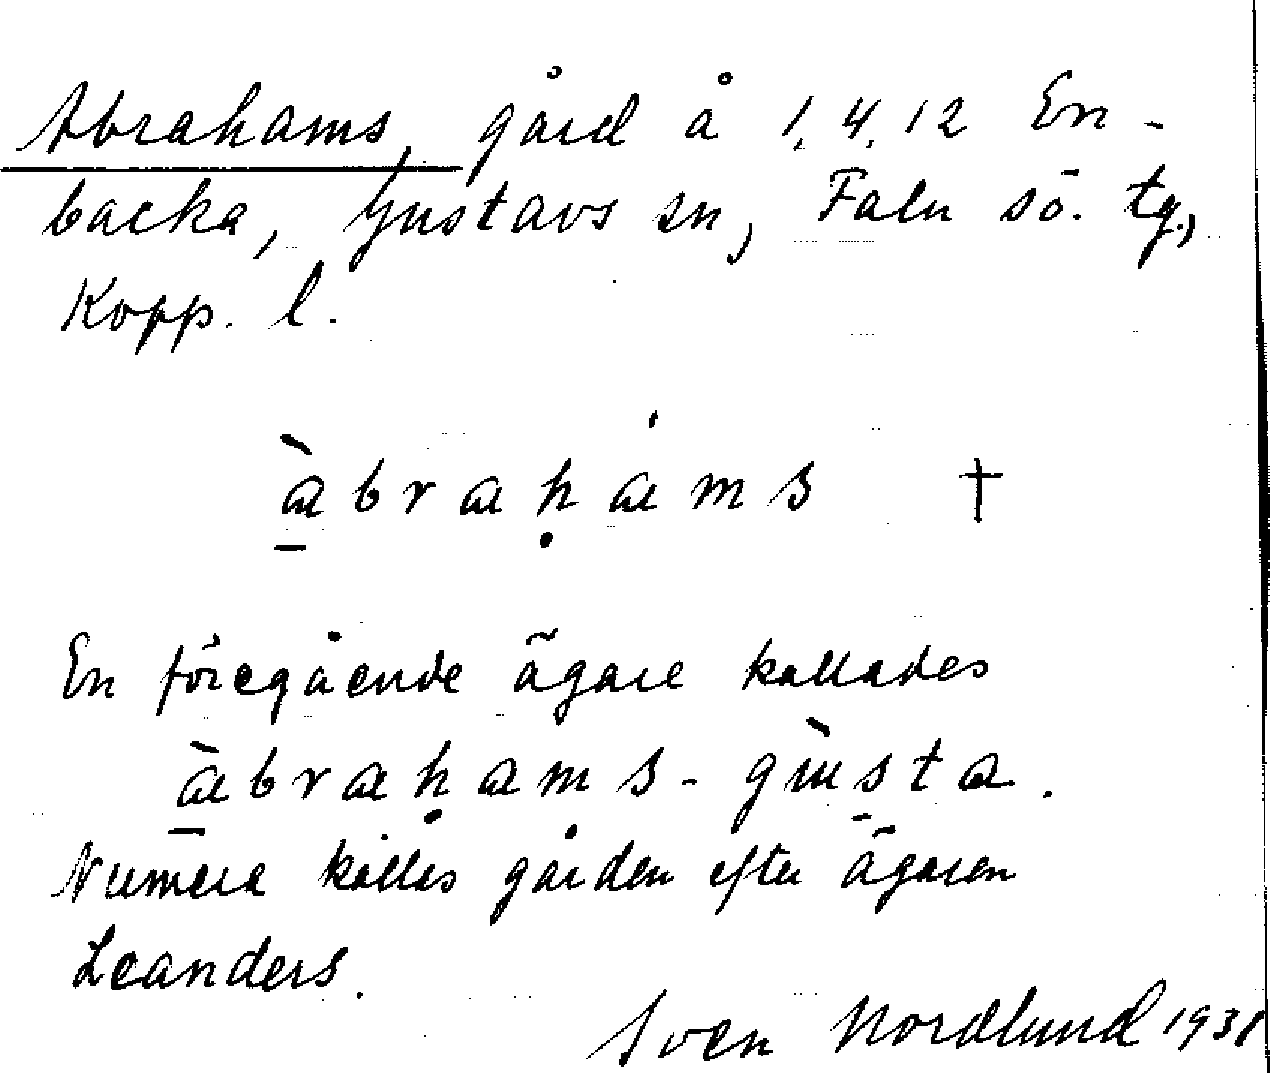 Abrahams, gård å 1, 4, 12 En-
backa, Gustavs sn, Falu sö. tg.,
Kopp. l.
à̱braḥáms †
En föregående ägare kallades
à̱braḥams-gùs̱ta.
Numera kallas gården efter ägaren
Leanders.
Sven Nordlund 1931